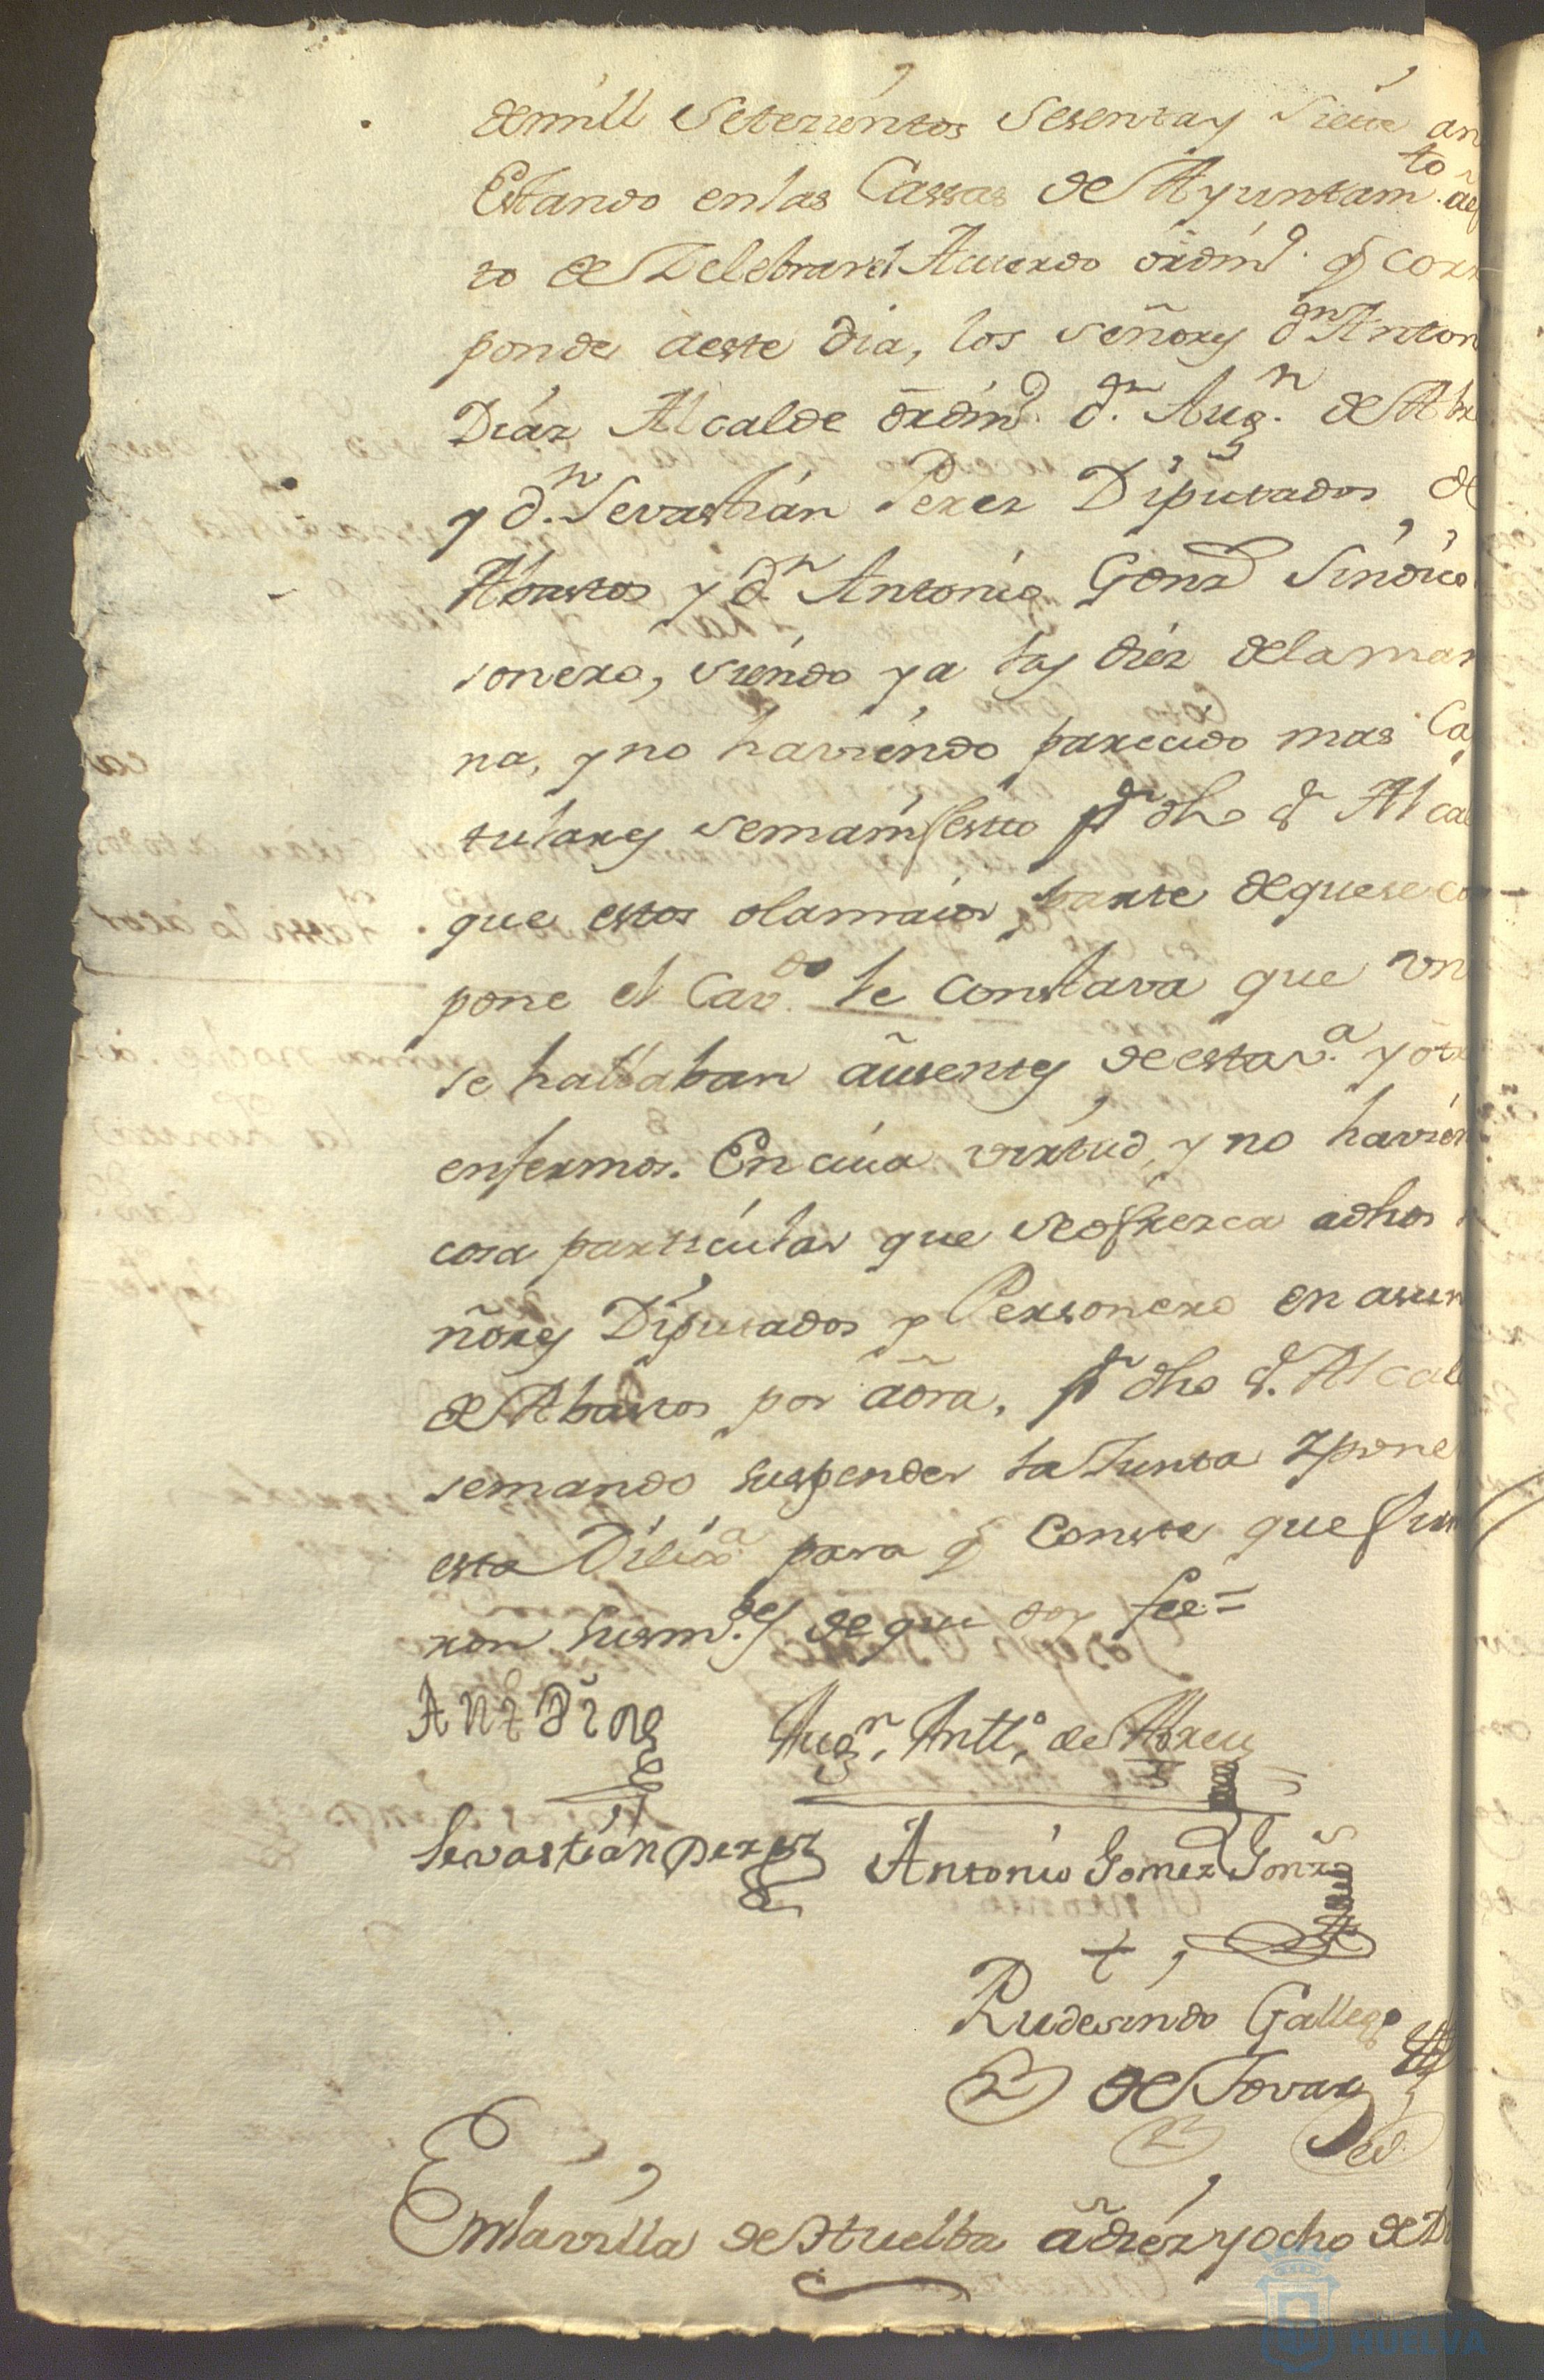 de mill Setezientos Sesenta y Siete añ
Estando en las Cassas de Ayuntamto. a ef
to de Zelebrar el Acuerdo ordino. q corr
ponde a este dia, los Señores dn Anton
Diaz Alcalde ordino. dn. Augn. de Abr
y dn. Sevastian Perez Diputados de
Abastos y dn. Antonio Gonz Sindico
sonero, siendo ya las diez de la mañ
na, y no haviendo parecido mas Ca
tulares se manifesto pr dho Sr Alcal
que estos o la maior parte de que se com
pone el Cavdo. le Constava que un
se hallaban ausentes de esta va. y otr
enfermos. En cuia virtud, y no havien
cosa particular que se ofrezca a dhos
ñores Diputados y Personero en asun
de Abastos por aora, pr dho Sr. Alcal
se mando suspender la Junta y pone
esta Diliga para q Conste que firm
ron sus mdes de que doy fee=
Anto Diaz
Augn. Antto. de Abreu
Sevastian Perez
Antonio Gomez Gonzs
Rudesindo Gallego
de Tovar
En la villa de Huelba a diez y ocho de
HUELVA